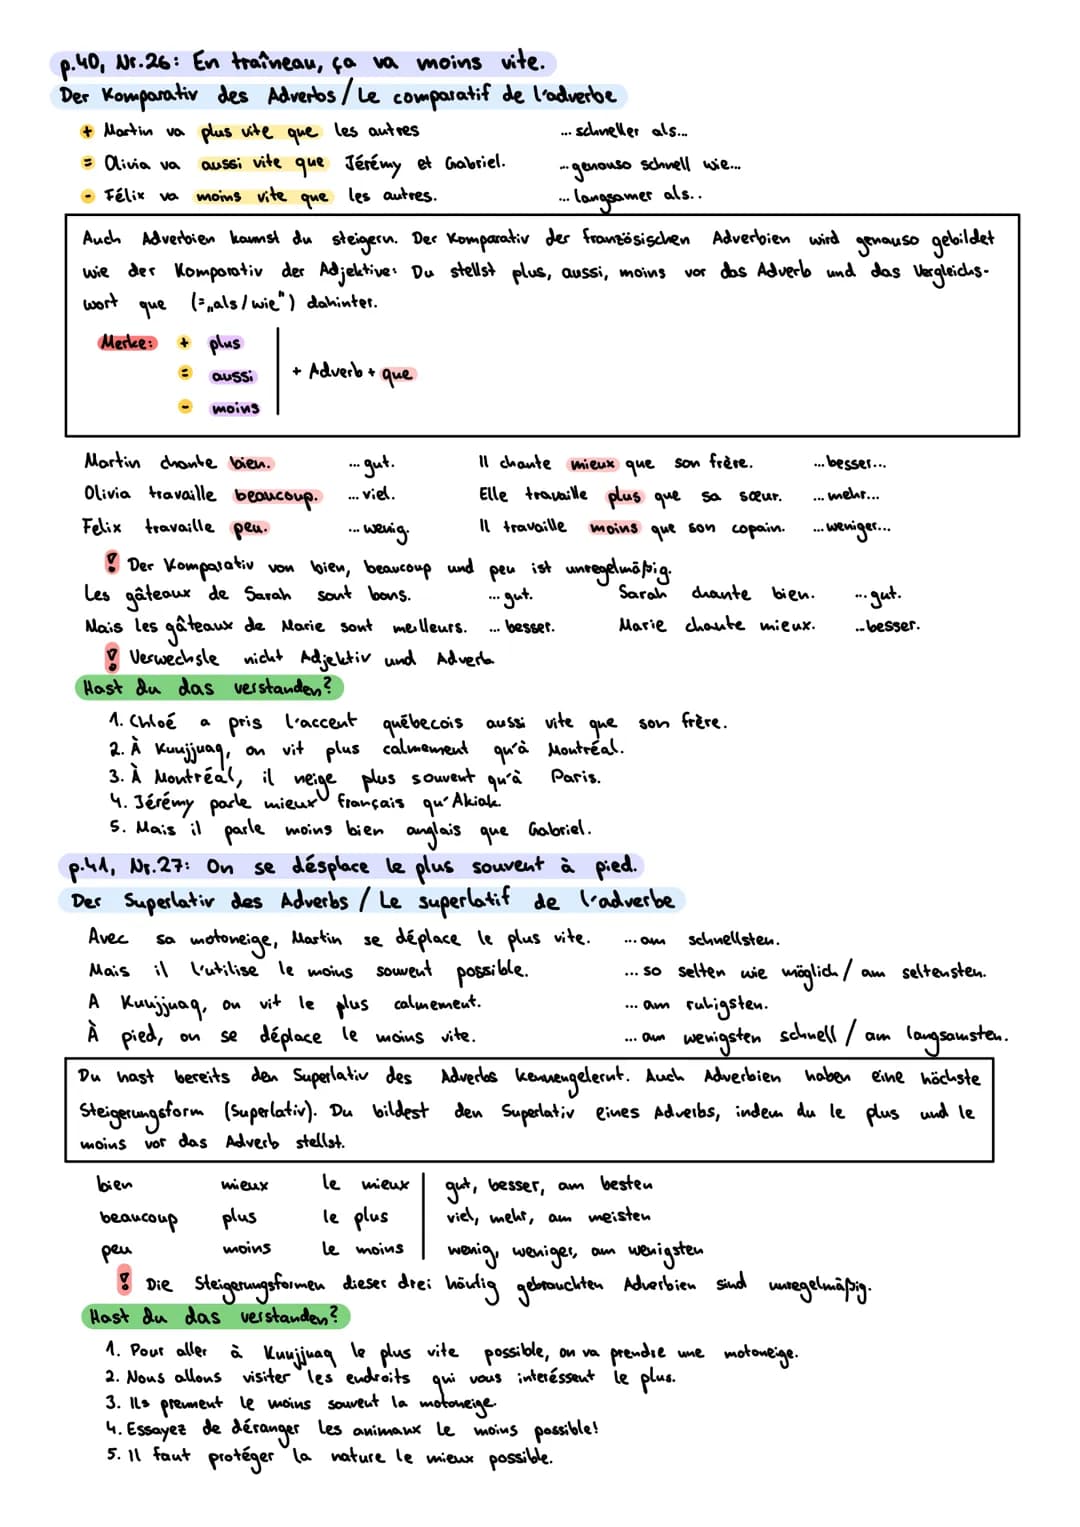 p.40, Nr.26: En traîneau, ça va moins vite.
Der Komparativ des Adverbs / Le comparatif de l'adverbe
+ Martin va plus vite que les autres ... schneller als...
= Olivia va aussi vite que Jérémy et Gabriel. ... genauso schnell wie...
- Félix va moins vite que les autres. ... langsamer als..
Auch Adverbien kannst du steigern. Der Komparativ der französischen Adverbien wird genauso gebildet
wie der Komparativ der Adjektive: Du stellst plus, aussi, moins vor das Adverb und das Vergleichs-
wort que (=„als/wie") dahinter.
Merke: + plus
= aussi + Adverb + que
- moins
Martin chante bien. ... gut. Il chante mieux que son frère. ... besser...
Olivia travaille beaucoup. ... viel. Elle travaille plus que sa sœur. ... mehr...
Felix travaille peu. ... wenig. Il travaille moins que son copain. ... weniger...
! Der Komparativ von bien, beaucoup und peu ist unregelmäßig.
Les gâteaux de Sarah sont bons. ... gut. Sarah chante bien. ... gut.
Mais les gâteaux de Marie sont meilleurs. ... besser. Marie chante mieux. ..besser.
! Verwechsle nicht Adjektiv und Adverb
Hast du das verstanden?
1. Chloé a pris l'accent québecois aussi vite que son frère.
2. À Kuujjuaq, on vit plus calmement qu'à Montréal.
3. À Montréal, il neige plus souvent qu'à Paris.
4. Jérémy parle mieux français qu'Akiak.
5. Mais il parle moins bien anglais que Gabriel.
p.41, Nr.27: On se désplace le plus souvent à pied.
Der Superlativ des Adverbs / Le superlatif de l'adverbe
Avec sa motoneige, Martin se déplace le plus vite. ... am schnellsten.
Mais il l'utilise le moins souvent possible. ... so selten wie möglich / am seltensten.
A Kuujjuaq, on vit le plus calmement. ... am ruhigsten.
À pied, on se déplace le moins vite. ... am wenigsten schnell / am langsamsten.
Du hast bereits den Superlativ des Adverbs kennengelernt. Auch Adverbien haben eine höchste
Steigerungsform (Superlativ). Du bildest den Superlativ eines Adverbs, indem du le plus und le
moins vor das Adverb stellst.
bien mieux le mieux gut, besser, am besten
beaucoup plus le plus viel, mehr, am meisten
peu moins le moins wenig, weniger, am wenigsten
! Die Steigerungsformen dieser drei häufig gebrauchten Adverbien sind unregelmäßig.
Hast du das verstanden?
1. Pour aller à Kuujjuaq le plus vite possible, on va prendre une motoneige.
2. Nous allons visiter les endroits qui vous interéssent le plus.
3. Ils prennent le moins souvent la motoneige.
4. Essayez de déranger les animaux le moins possible!
5. Il faut protéger la nature le mieux possible.